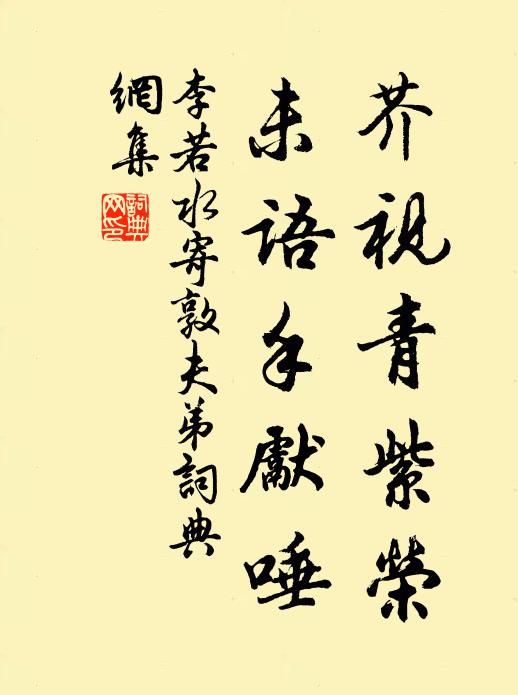 芥視青紫榮
未語手獻唾
李若水寄敦夫弟詞典
網集
詞典
网印